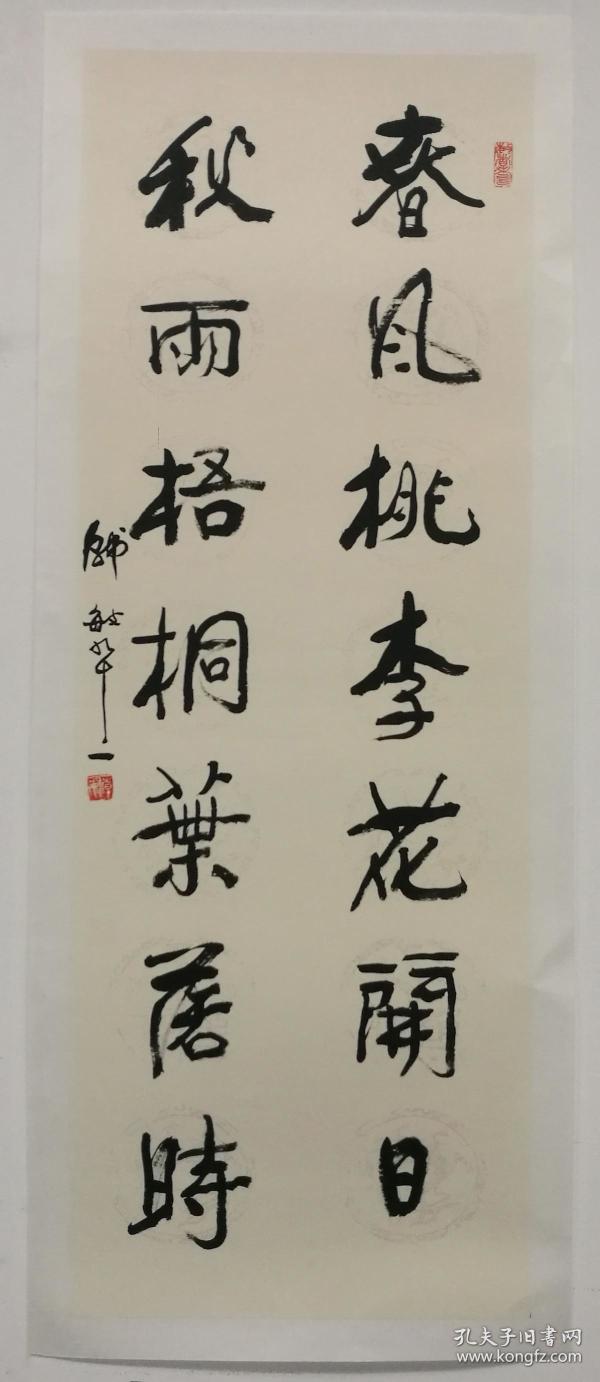 春风桃李花開日
秋雨梧桐葉落時
孔夫子旧書网
www.kongfz.com